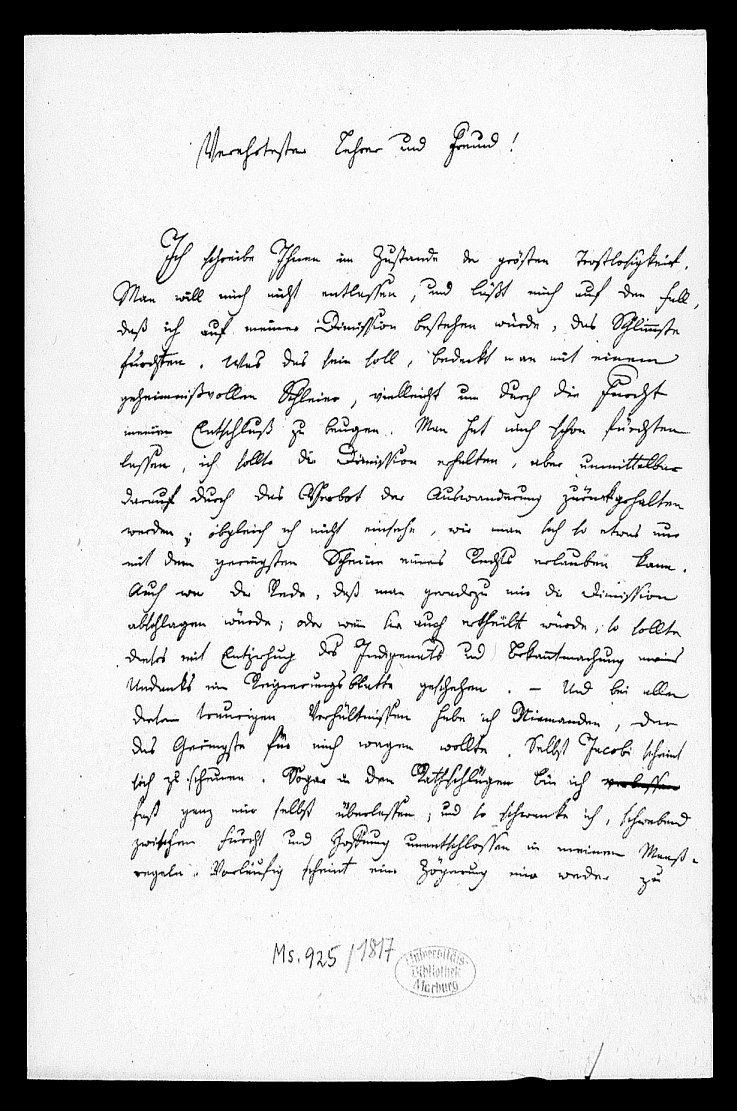 Verehrtester Lehrer und Freund!
Ich schreibe Ihnen im Zustande der grösten Trostlosigkeit.
Man will mich nicht entlassen, und läßt mich auf den Fall,
daß ich auf meiner Dimission bestehen würde, das Schlimmste
fürchten. Was das sein soll, bedeckt man mit einem
geheimnißvollen Schleier, vielleicht um durch die Furcht
meinen Entschluß zu beugen. Man hat mich schon fürchten
lassen, ich sollte die Dimission erhalten, aber unmittelbar
darauf durch das Verbot der Auswanderung zurückgehalten
werden; obgleich ich nicht einsehe, wie man sich so etwas nur
mit dem geringsten Scheine eines Rechts erlauben kann.
Auch war die Rede, daß man geradezu mir die Dimission
abschlagen würde; oder wenn sie auch ertheilt würde, so sollte
dieses mit Entziehung des Indigenats und Bekanntmachung meines
Undanks im Regierungsblatte geschehen. – Und bei allen
diesen traurigen Verhältnissen habe ich Niemanden, der
das Geringste für mich wagen wollte. Selbst Jacobi scheint
sich zu scheuen. Sogar in den Rathschlägen bin ich
fast ganz mir selbst überlassen; und so schwanke ich, schwebend
zwischen Furcht und Hoffnung unentschlossen in meinen Maaß-
regeln. Vorläufig scheint eine Zögerung mir weder zu
Ms. 925/1817
Universitäts-
Bibliothek
Marburg